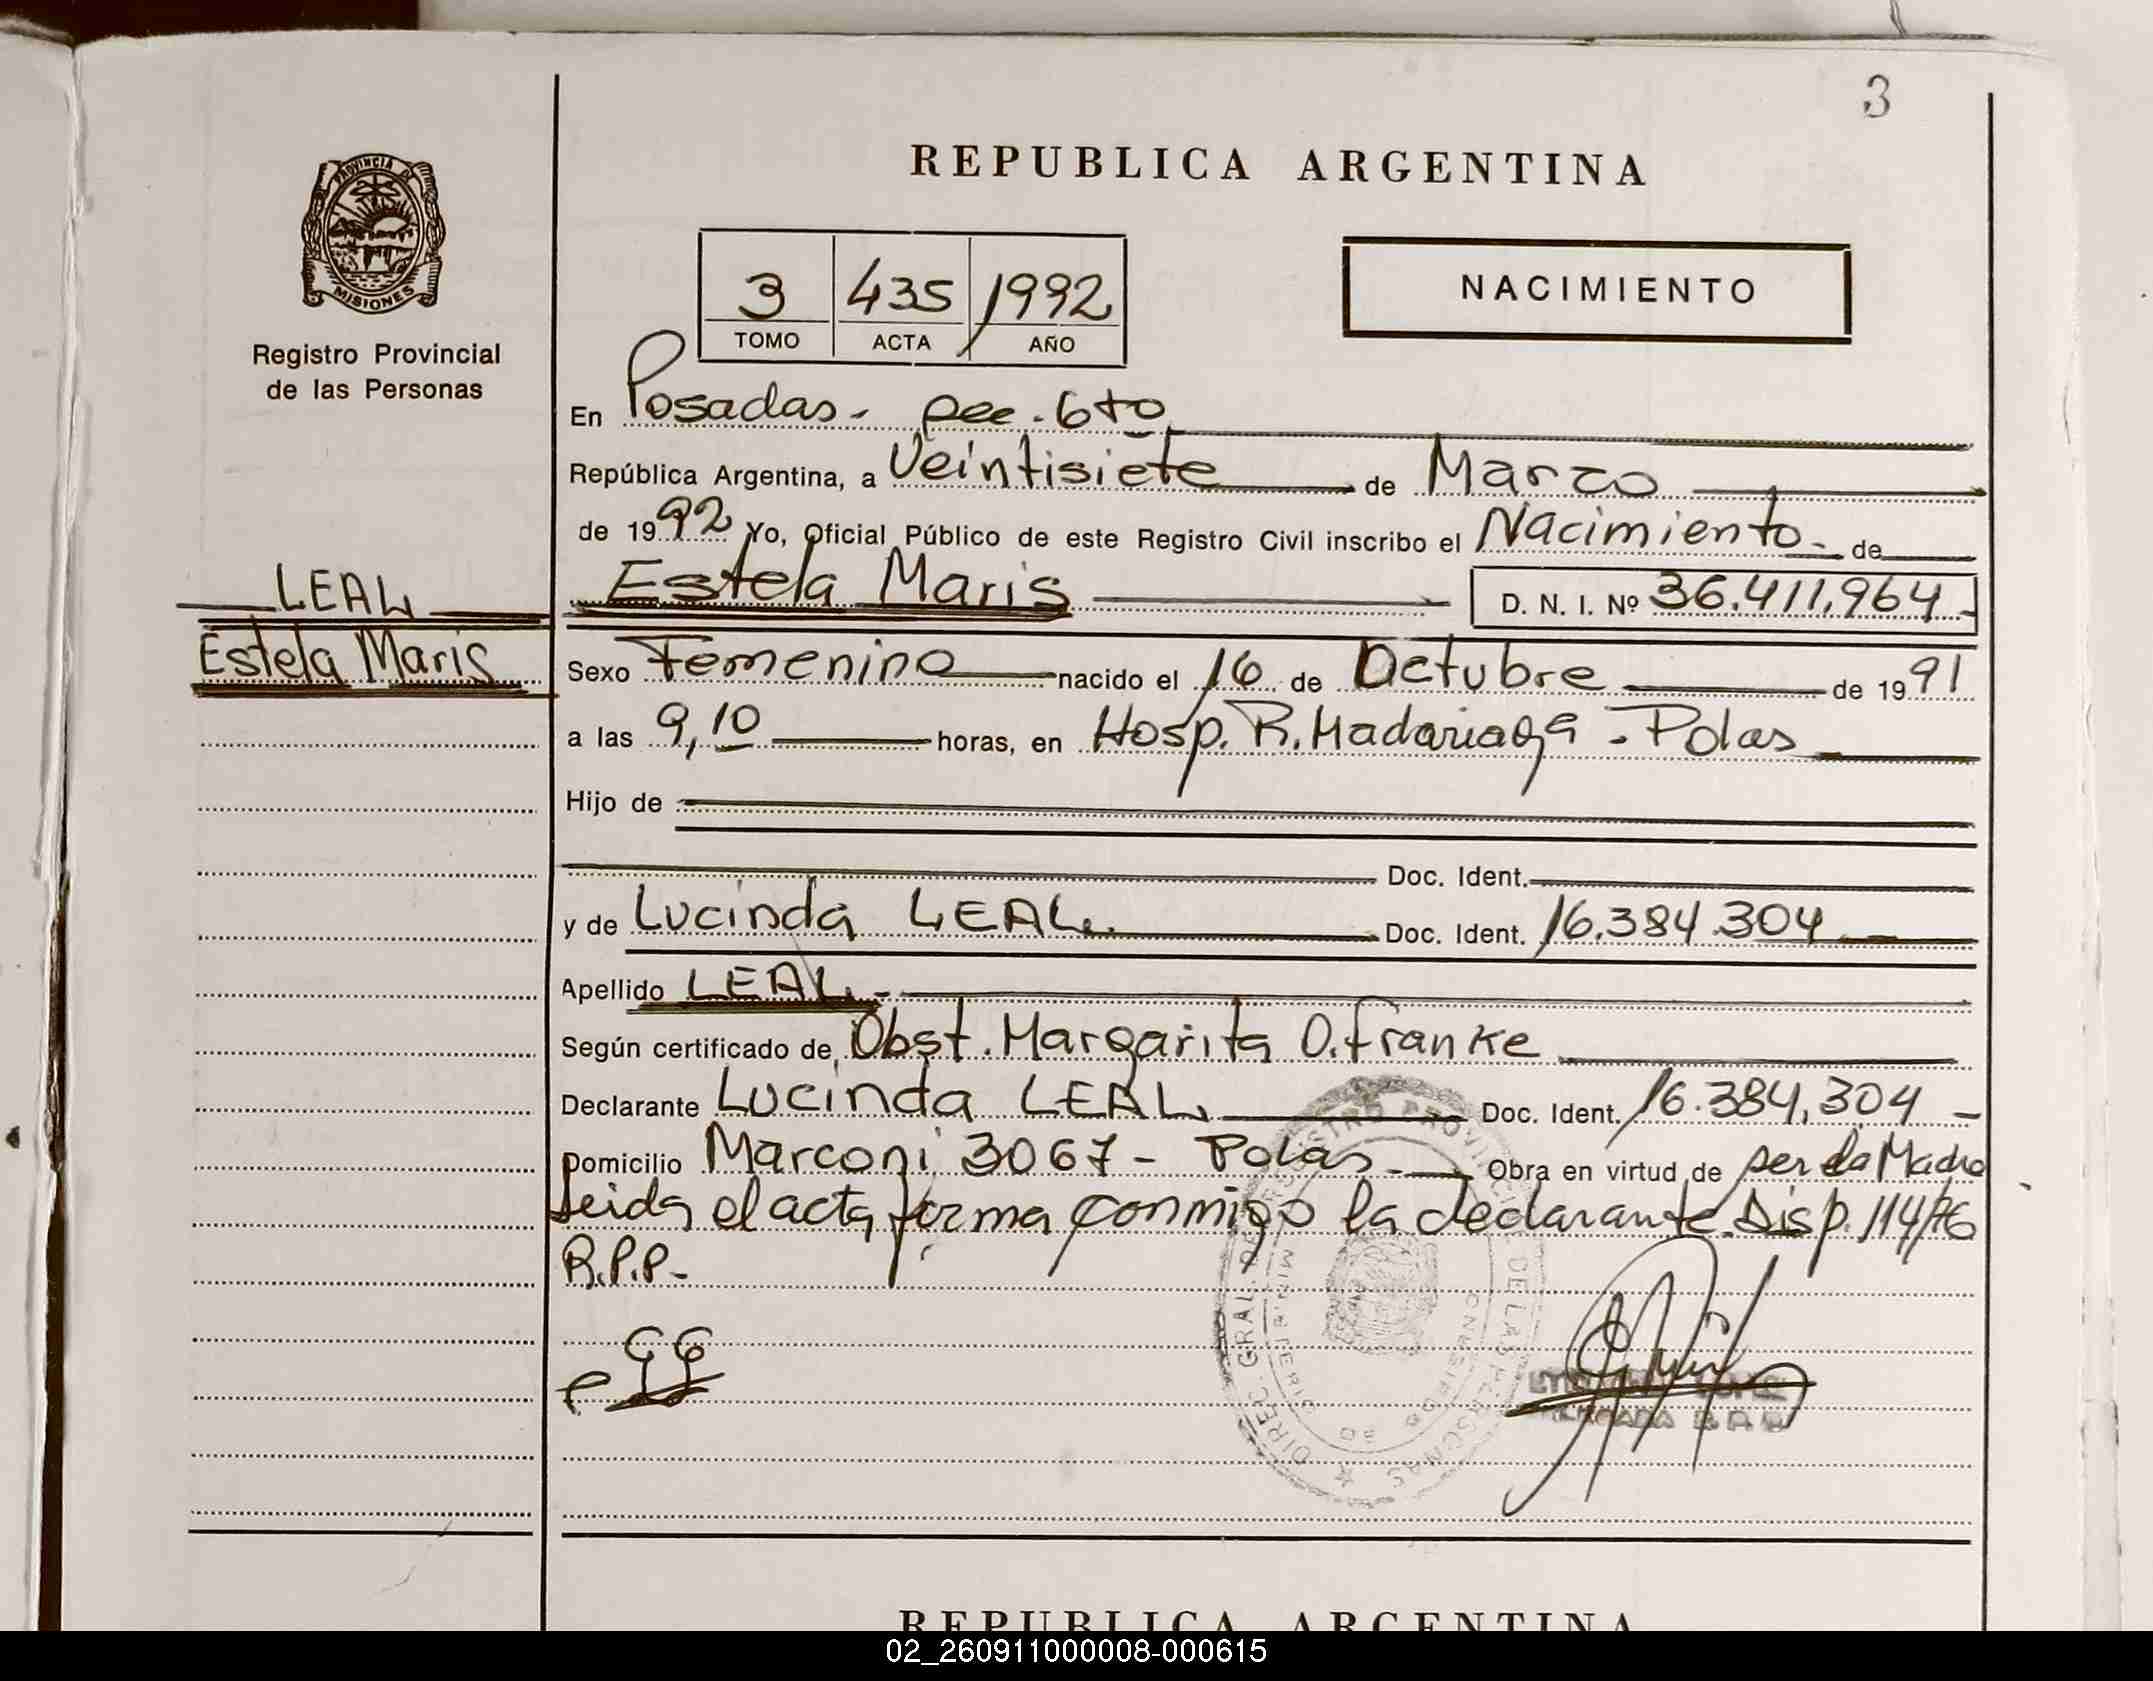 3
REPUBLICA ARGENTINA
PROVINCIA DE
MISIONES
Registro Provincial
de las Personas
3 435 1992
TOMO ACTA AÑO
NACIMIENTO
En Posadas - 6to
República Argentina, a Veintisiete de Marzo
de 1992 Yo, Oficial Público de este Registro Civil inscribo el Nacimiento - de
LEAL
Estela Maris
Estela Maris D. N. I. Nº 36.411.964
Sexo Femenino nacido el 16 de Octubre de 1991
a las 9,10 horas, en Hosp. R. Madariaga - Pdas
Hijo de
Doc. Ident.
y de Lucinda LEAL Doc. Ident. 16.384.304
Apellido LEAL.-
Según certificado de Obst. Margarita O. Franke
Declarante Lucinda LEAL Doc. Ident. 16.384.304 -
Domicilio Marconi 3067 - Pdas - Obra en virtud de ser la Madre
Leida el acta firma conmigo la declarante. Disp. 114/76
R.P.P.-
DIREC. GRAL. DE REGISTRO PROVINCIAL DE LAS PERSONAS
REPUBLICA ARGENTINA
02_260911000008-000615